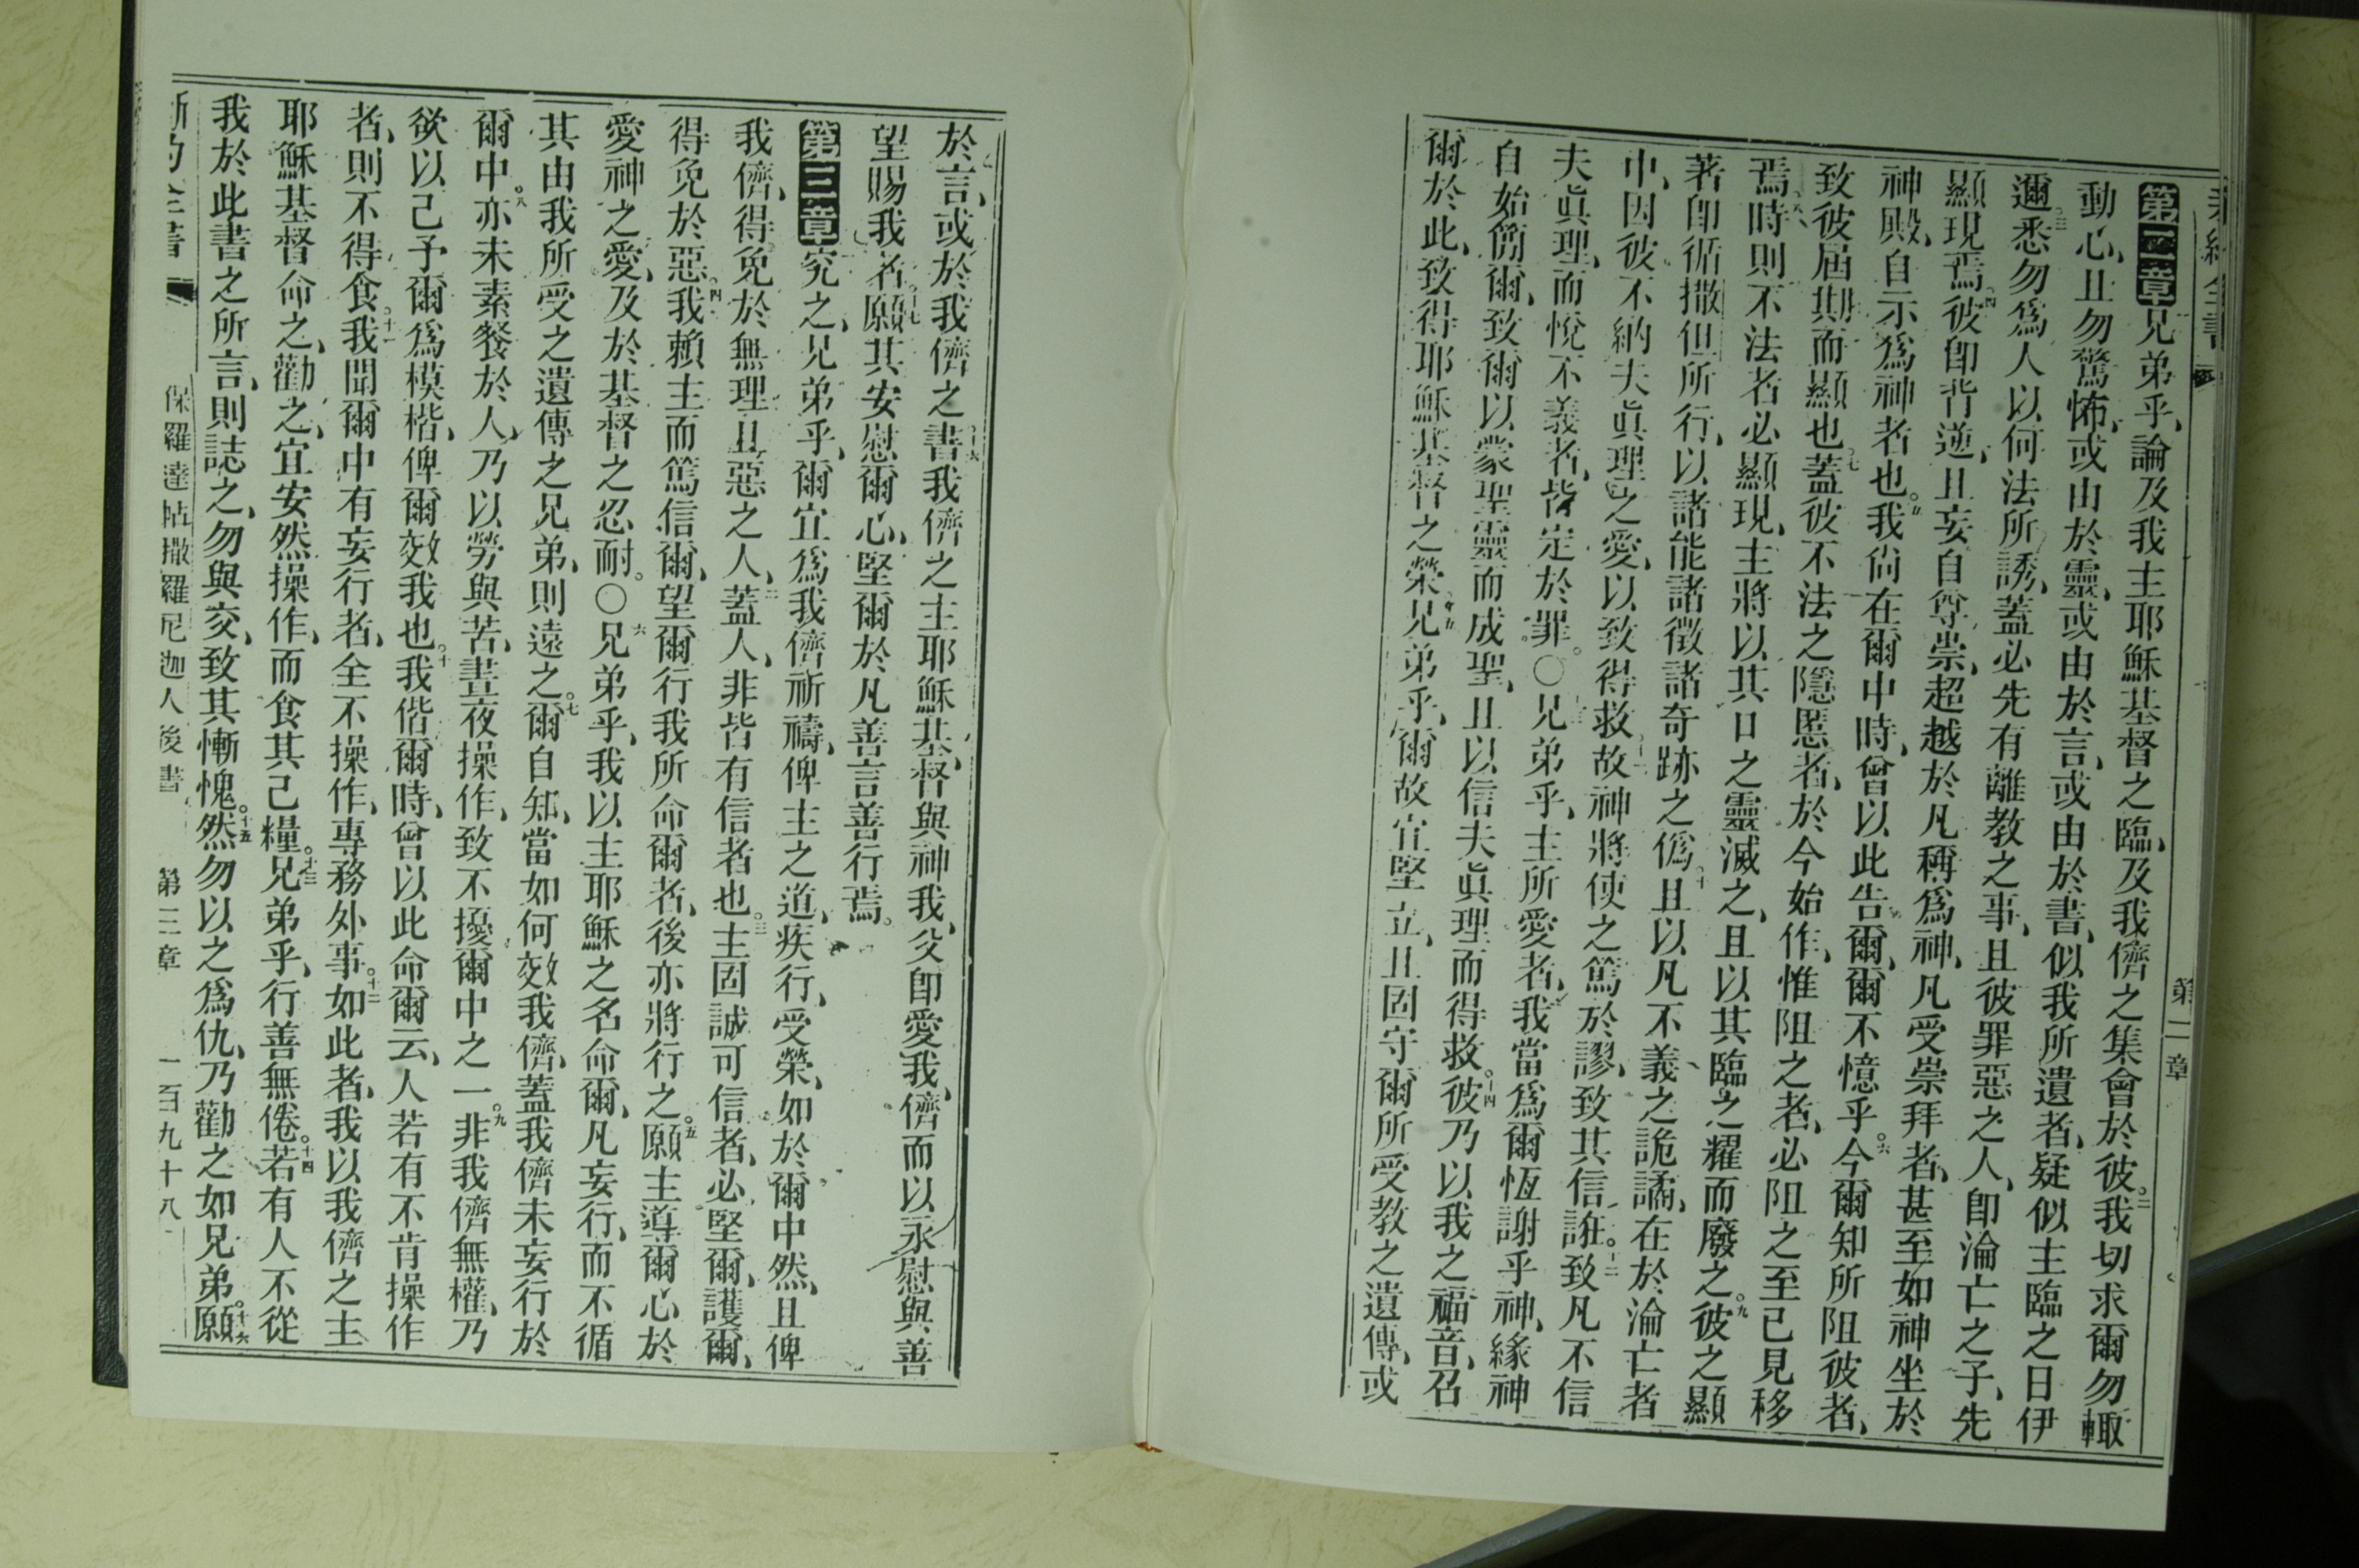 第二章
第二章兄弟乎、論及我主耶穌基督之臨、及我儕之集會於彼。二我切求爾勿輙
動心、且勿驚怖、或由於靈、或由於言、或由於書、似我所遺者、疑似主臨之日伊
邇。三悉勿爲人以何法所誘、蓋必先有離教之事、且彼罪惡之人、卽淪亡之子、先
顯現焉。四彼卽背逆、且妄自尊崇、超越於凡稱爲神、凡受崇拜者、甚至如神坐於
神殿、自示爲神者也。五我尙在爾中時、曾以此告爾、爾不憶乎。六今爾知所阻彼者、
致彼屆期而顯也。七蓋彼不法之隱慝者、於今始作、惟阻之者、必阻之至已見移
焉。八時則不法者必顯現、主將以其口之靈滅之、且以其臨之耀而廢之。九彼之顯
著卽循撒但所行、以諸能諸徵諸奇跡之僞。十且以凡不義之詭譎、在於淪亡者
中、因彼不納夫眞理之愛、以致得救。十一故神將使之篤於謬、致其信誑。十二致凡不信
夫眞理、而悅不義者、皆定於罪。〇兄弟乎、主所愛者、我當爲爾恆謝乎神、緣神
自始簡爾、致爾以蒙聖靈而成聖、且以信夫眞理而得救。十四彼乃以我之福音、召
爾於此、致得耶穌基督之榮。十五兄弟乎、爾故宜堅立、且固守爾所受教之遺傳、或
於言、或於我儕之書。十六我儕之主耶穌基督、與神我父卽愛我儕、而以永慰與善
望賜我者。十七願其安慰爾心、堅爾於凡善言善行焉。
第三章究之、兄弟乎、爾宜爲我儕祈禱、俾主之道、疾行、受榮、如於爾中然、且俾
我儕、得免於無理且惡之人、蓋人非皆有信者也。三主固誠可信者、必堅爾、護爾、
得免於惡。四我賴主而篤信爾、望爾行我所命爾者、後亦將行之。五願主導爾心於
愛神之愛、及於基督之忍耐。〇六兄弟乎、我以主耶穌之名命爾、凡妄行、而不循
其由我所受之遺傳之兄弟、則遠之。七爾自知、當如何效我儕、蓋我儕未妄行於
爾中。八亦未素餐於人、乃以勞與苦、晝夜操作、致不擾爾中之一。九非我儕無權、乃
欲以己予爾爲模楷、俾爾效我也。十我偕爾時、曾以此命爾云、人若有不肯操作
者、則不得食。十一我聞爾中有妄行者、全不操作、專務外事。十二如此者、我以我儕之主
耶穌基督命之、勸之、宜安然操作、而食其己糧。十三兄弟乎、行善無倦。十四若有人不從
我於此書之所言、則誌之、勿與交、致其慚愧。十五然勿以之爲仇、乃勸之如兄弟。十六願
保羅達帖撒羅尼迦人後書 第三章 一百九十八